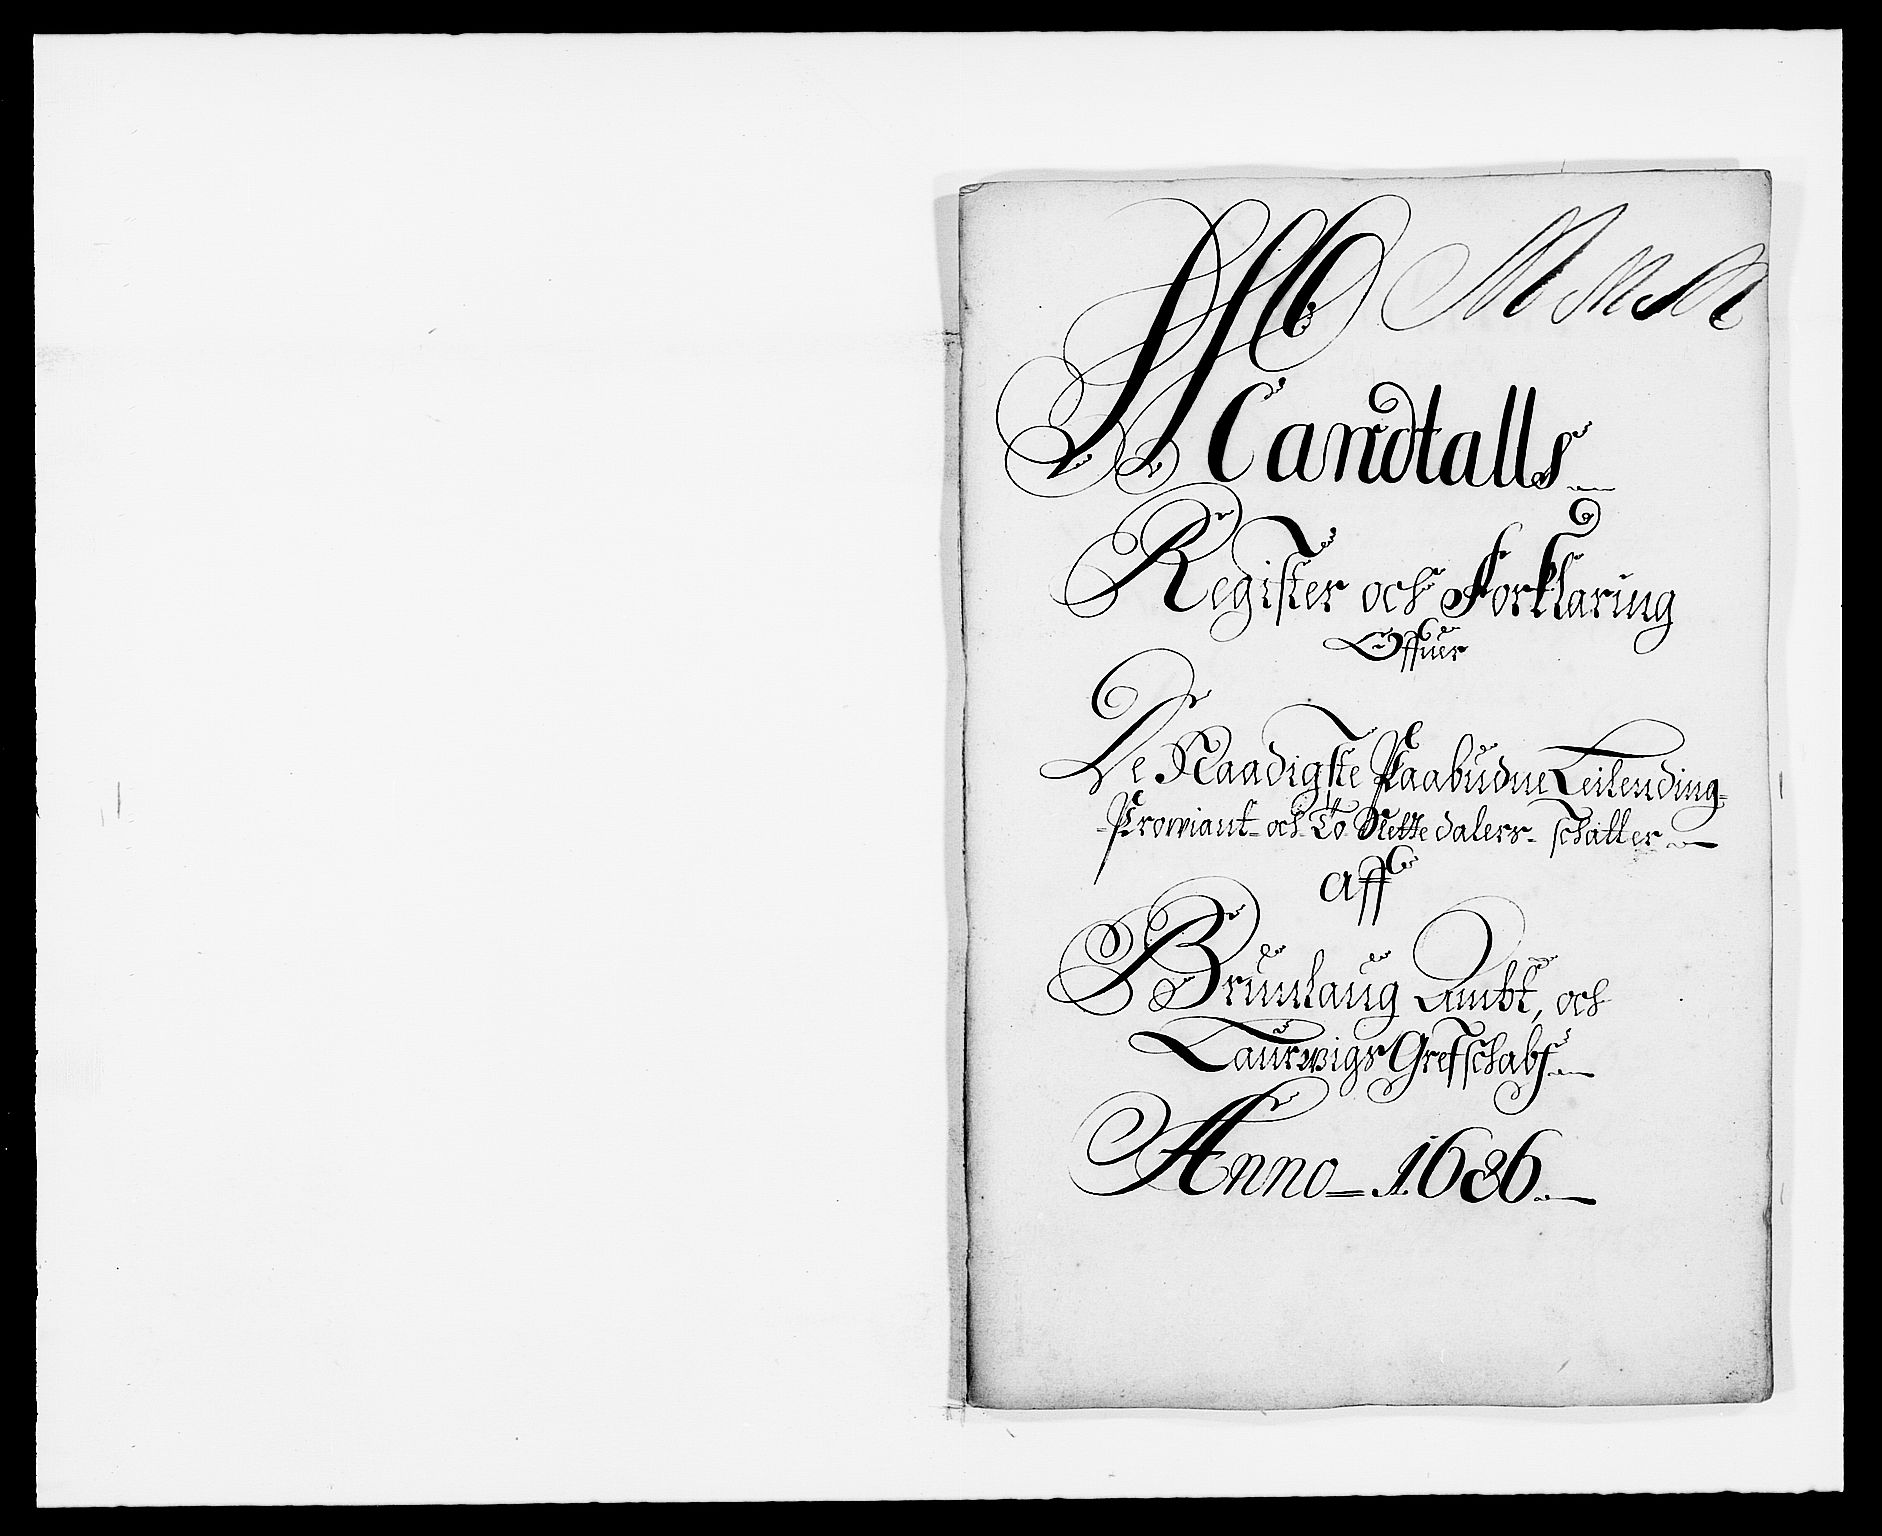 Mandtalls
Register och Forklaring
Offuer
De Naadigste Paabudne Leilending-
Proviant- och To Slette dalers- schatter
aff
Brunlaug Ambt, och
Laurwigs Grefschabs
Anno 1686